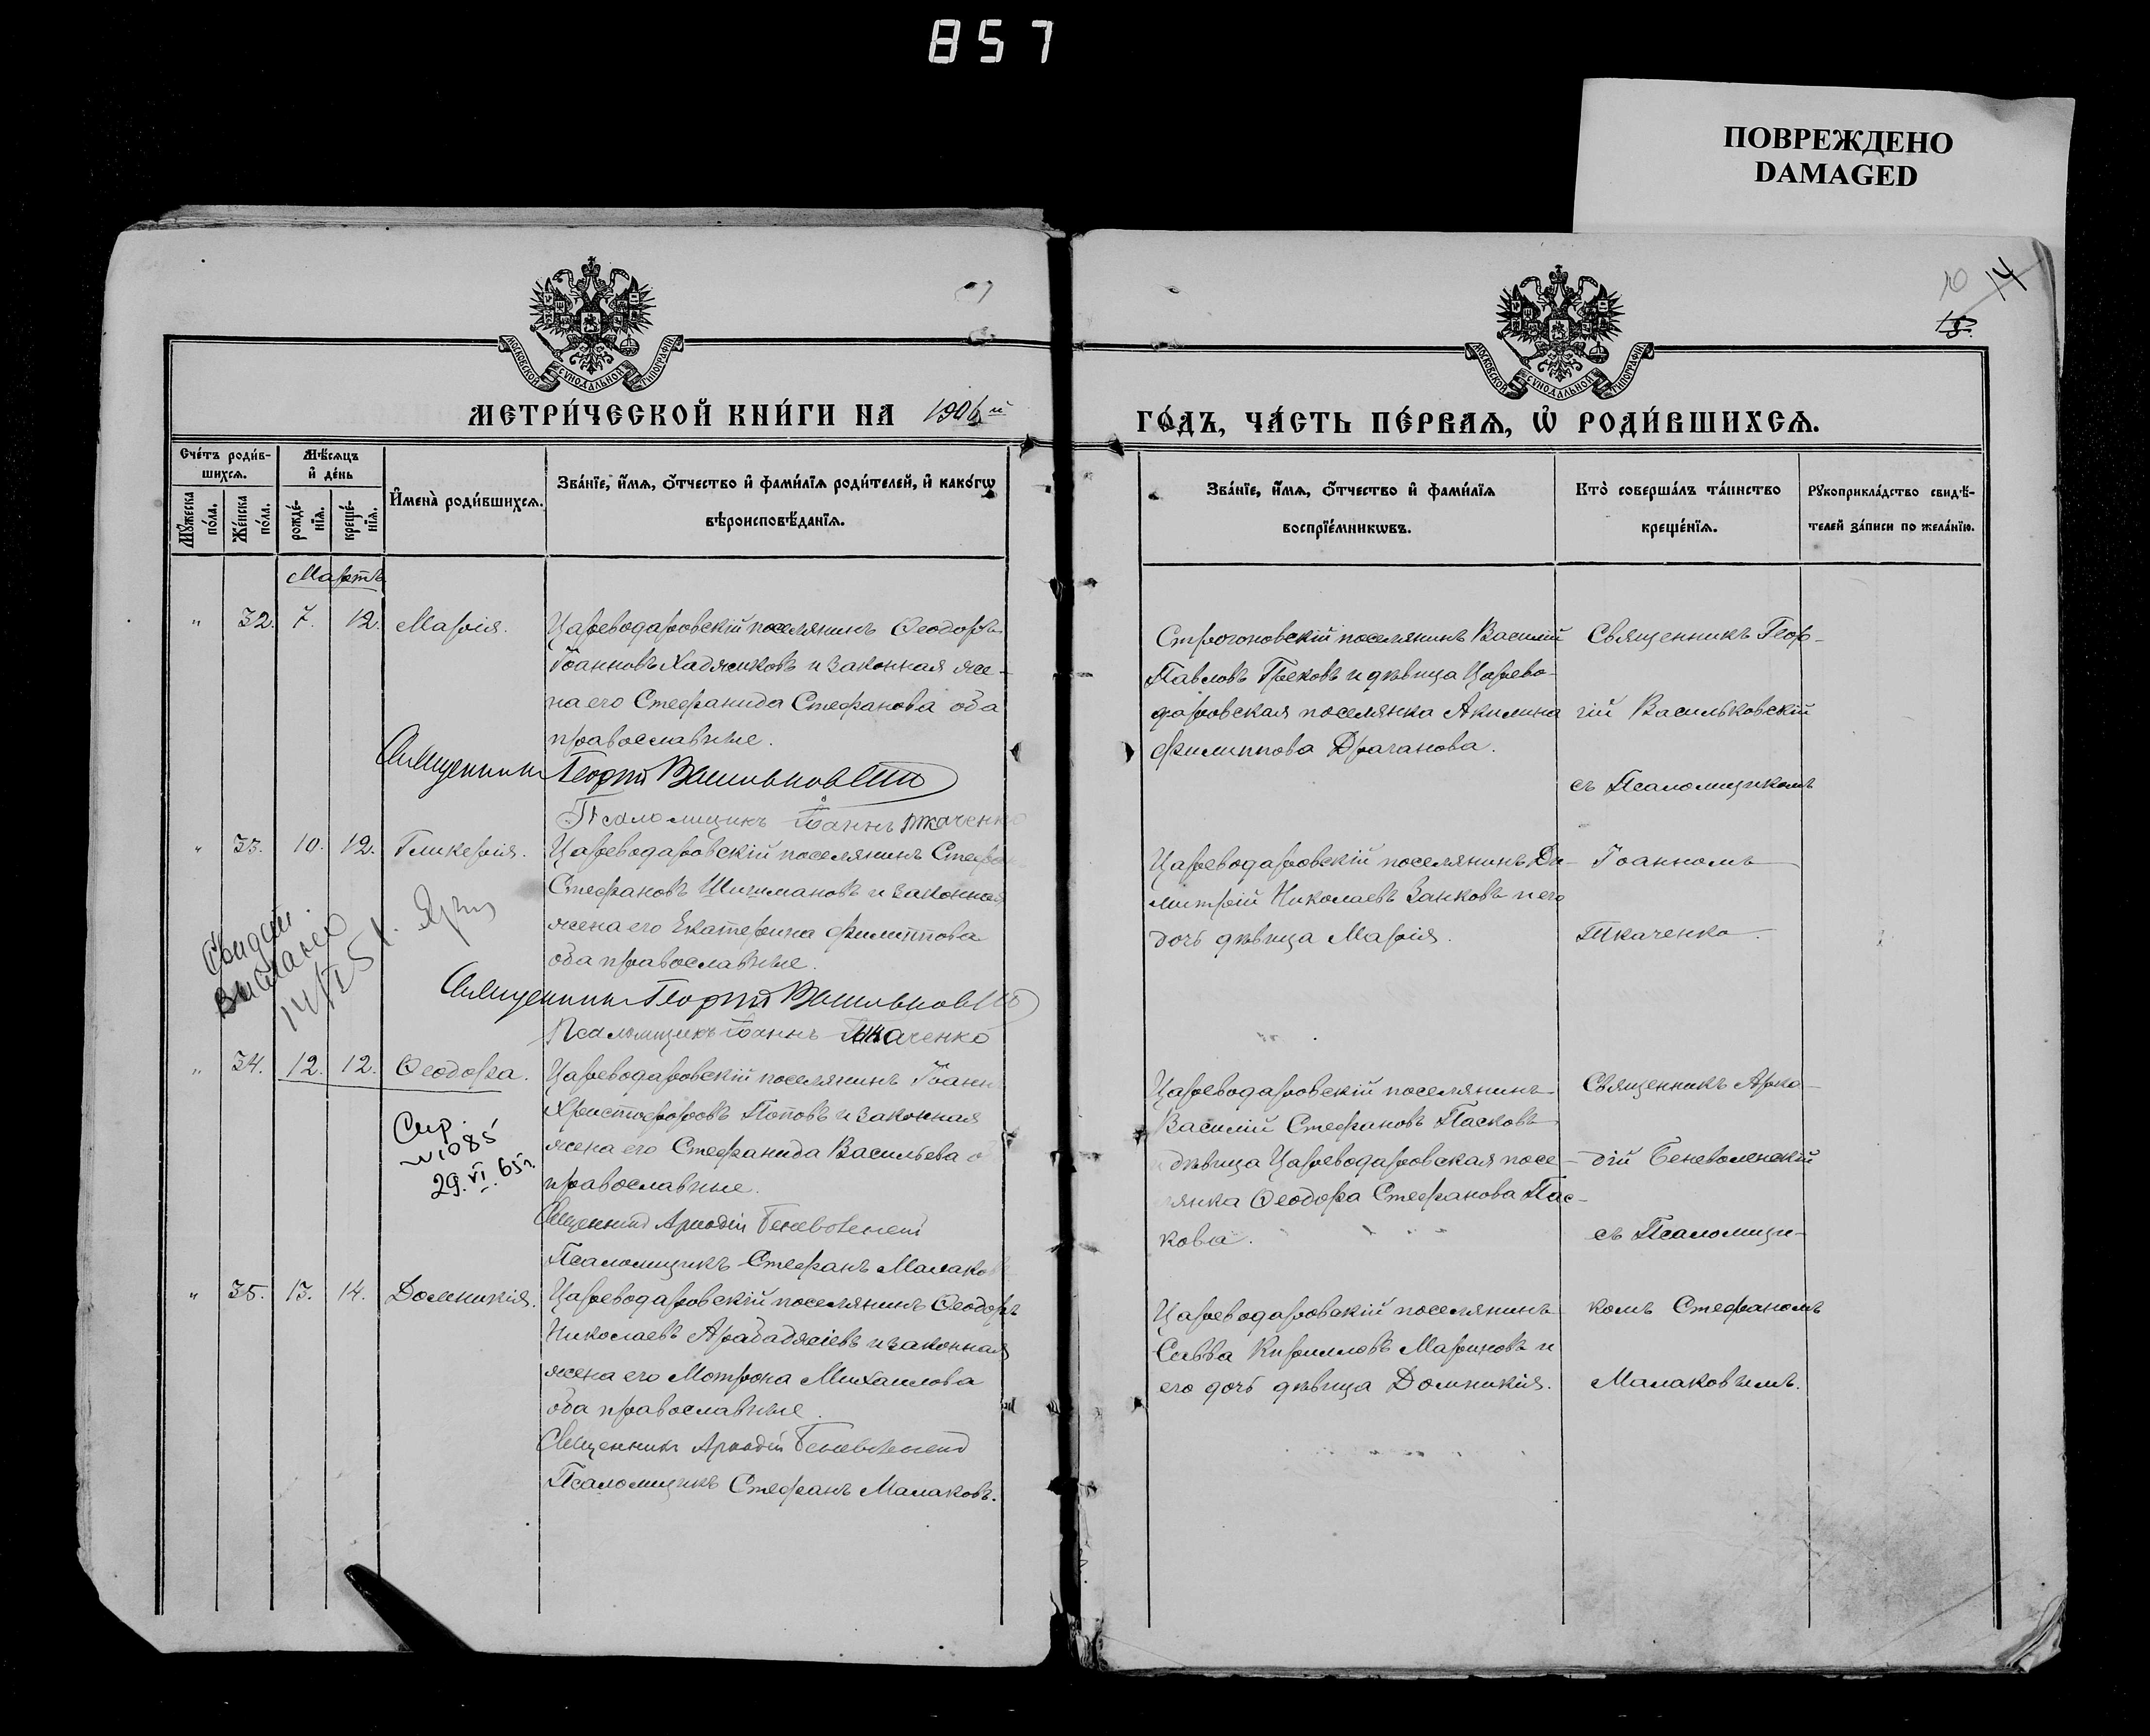 857
ПОВРЕЖДЕНО
DAMAGED
10 14
МОСКОВСКОЙ СѴНОДАЛЬНОЙ ТИПОГРАФІИ
МОСКОВСКОЙ СѴНОДАЛЬНОЙ ТИПОГРАФІИ
МЕТРИ́ЧЕСКОЙ КНИ́ГИ НА 1906й
ГО́ДЪ, ЧА́СТЬ ПЕ́РВАѦ, Ѡ҆ РОДИ́ВШИХСѦ.
Сче́тъ роди́в-
шихсѧ.
Мѣ́сѧцъ
и҆ де́нь
Мꙋ́жеска по́ла.
Же́нска по́ла.
рожде́-нїѧ.
креще́-нїѧ.
И҆мена̀ роди́вшихсѧ.
Зва́нїе, и҆́мѧ, ѻ҆́тчество и҆ фами́лїѧ роди́телей, и҆ како́гѡ
вѣроисповѣ́данїѧ.
Зва́нїе, и҆́мѧ, ѻ҆́тчество и҆ фами́лїѧ
воспрїе́мникѡвъ.
Кто̀ соверша́лъ та́инство
креще́нїѧ.
Рꙋкоприкла́дство свидѣ́-
телей за́писи по жела́нїю.
Мартъ
" 32. 7. 12. Марія.
Цареводаровскій поселянинъ Ѳеодоръ
Іоанновъ Хаджиковъ и законная же-
на его Стефанида Стефанова оба
православные.
Священникъ Георгій Васильковскій
Псаломщикъ Іоаннъ Ткаченко
Строгоновскій поселянинъ Василій
Павловъ Грековъ и дѣвица Царево-
даровская поселянка Акилина
Филиппова Драганова.
Священникъ Геор-
гій Васильковскій
съ Псаломщикомъ
" 33. 10. 12. Гликерія.
Цареводаровскій поселянинъ Стефанъ
Стефановъ Шишмановъ и законная
жена его Екатерина Филиппова
оба православные.
Священникъ Георгій Васильковскій
Псаломщикъ Іоаннъ Ткаченко
Свидет.
выслано
14/II 51 г.
Цареводаровскій поселянинъ Ди-
митрій Николаевъ Занковъ и его
дочь дѣвица Марія.
Іоанномъ
Ткаченко.
" 34. 12. 12. Ѳеодора.
Спр.
№1085
29.VI.65г.
Цареводаровскій поселянинъ Іоаннъ
Христофоровъ Поповъ и законная
жена его Стефанида Васильева о
православные.
Священникъ Аркадій Беневоленскій
Псаломщикъ Стефанъ Малаковъ
Цареводаровскій поселянинъ
Василій Стефановъ Пасковъ
и дѣвица Цареводаровская посе-
лянка Ѳеодора Стефанова Пас-
кова.
Священникъ Арка-
дій Беневоленскій
съ Псаломщи-
" 35. 13. 14. Домникія.
Цареводаровскій поселянинъ Ѳеодоръ
Николаевъ Арабаджіевъ и законная
жена его Мотрона Михаилова
оба православные.
Священникъ Аркадій Беневоленскій
Псаломщикъ Стефанъ Малаковъ.
Цареводаровскій поселянинъ
Савва Кирилловъ Мариновъ и
его дочь дѣвица Домникія.
комъ Стефаномъ
Малаковымъ.